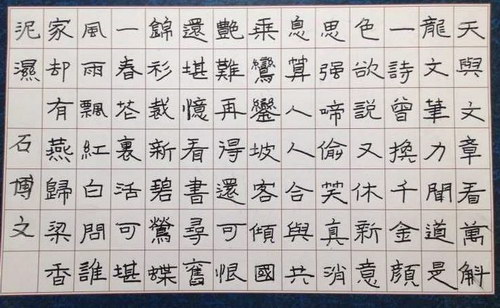 天與文章看萬斛
龍文筆力聞道是
一詩曾換千金顏
色欲說又休新意
思强啼偷笑真消
息算人人合與共
乘鸞鑾坡客傾國
艷難再得還可恨
還堪憶看書尋舊
錦彩裁新碧鶯蝶
一春芲裏活可堪
風雨飄紅白問誰
家却有燕歸梁香
泥濕 石博文